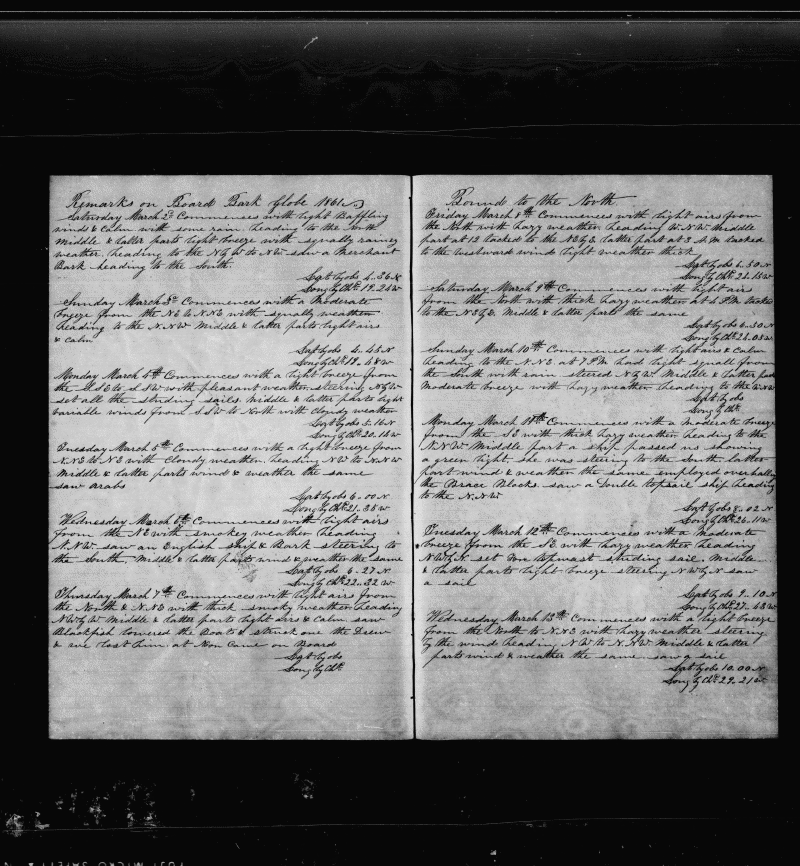 Remarks on Board Bark Globe 1861
Saturday March 2d Commences with light Baffling
winds & Calm with some rain heading to the North
Middle & latter parts light breeze with squally rainey
weather heading to the N by W to NW saw a Merchant
Bark heading to the South.
Lat by obs 4..36 N
Long by Chr 19..24 W
Sunday March 3d Commences with a Moderate
breeze from the NE to NNE with squally weather
heading to the NNW Middle & latter parts light airs
& calm
Lat by obs 4..43 N
Long by Chr 19..48 W
Monday March 4th Commences with a light breeze from
the SSE to SSW with pleasant weather steering N by W
set all the studing sails Middle & latter parts light
variable winds from SSW to North with cloudy weather
Lat by obs 5..16 N
Long by Chr 20..16 W
Tuesday March 5th Commences with a light breeze from
NNE to NE with cloudy weather heading NW to NNW
Middle & latter parts wind & weather the same
saw
Lat by obs 6..00 N
Long by Chr 21..35 W
Wednesday March 6th Commences with light airs
from the NE with smokey weather heading
NNW saw an English Ship & Bark steering to
the South, Middle & latter parts wind & weather the same
Lat by obs 6..27 N
Long by Chr 22..32 W
Thursday March 7th Commences with light airs from
the North & NNE with thick smoky weather heading
NW by W Middle & latter parts light airs & Calm saw
Blackfish lowered the Boats & struck one the Drew
& we lost him at Non Came on Board
Lat by obs
Long by Chr
Bound to the North
Friday March 8th Commences with light airs from
the North with hazy weather heading WNW Middle
part at 12 tacked to the N E latter part at 3 AM tacked
to the westward wind light weather thick
Lat by obs 6..50 N
Long by Chr 24..15 W
Saturday March 9th Commences with light airs
from the North with thick hazy weather at 6 PM tacked
to the Middle & latter parts the same
Lat by obs 6..50 N
Long by Chr 24..03 W
Sunday March 10th Commences with light airs & Calm
heading to the NNE at 7 PM had light squalls from
the South with rain steered N by W. Middle & latter part
moderate breeze with hazy weather heading to the WNW
Lat by obs
Long by Chr
Monday March 11th Commences with a moderate breeze
from the NE with thick hazy weather heading to the
NNW Middle part a ship passed us showing
a green light she was steering to the South. latter
part wind & weather the same employed overhalling
the Brace Blocks. saw a Double topsail ship heading
to the NNW
Lat by obs 8..02 N
Long by Chr 26..11 W
Tuesday March 12th Commences with a Moderate
breeze from the NE with hazy weather heading
NW by N set Fore topmast studing sail. Middle
& latter parts light breeze steering NW by N saw
a sail
Lat by obs 9..10 N
Long by Chr 27..48 W
Wednesday March 13th Commences with a light breeze
from the North to NNE with hazy weather steering
by the wind heading NW to NNW Middle & latter
parts wind & weather the same saw a sail
Lat by obs 10.00 N
Long by Chr 29..21 W